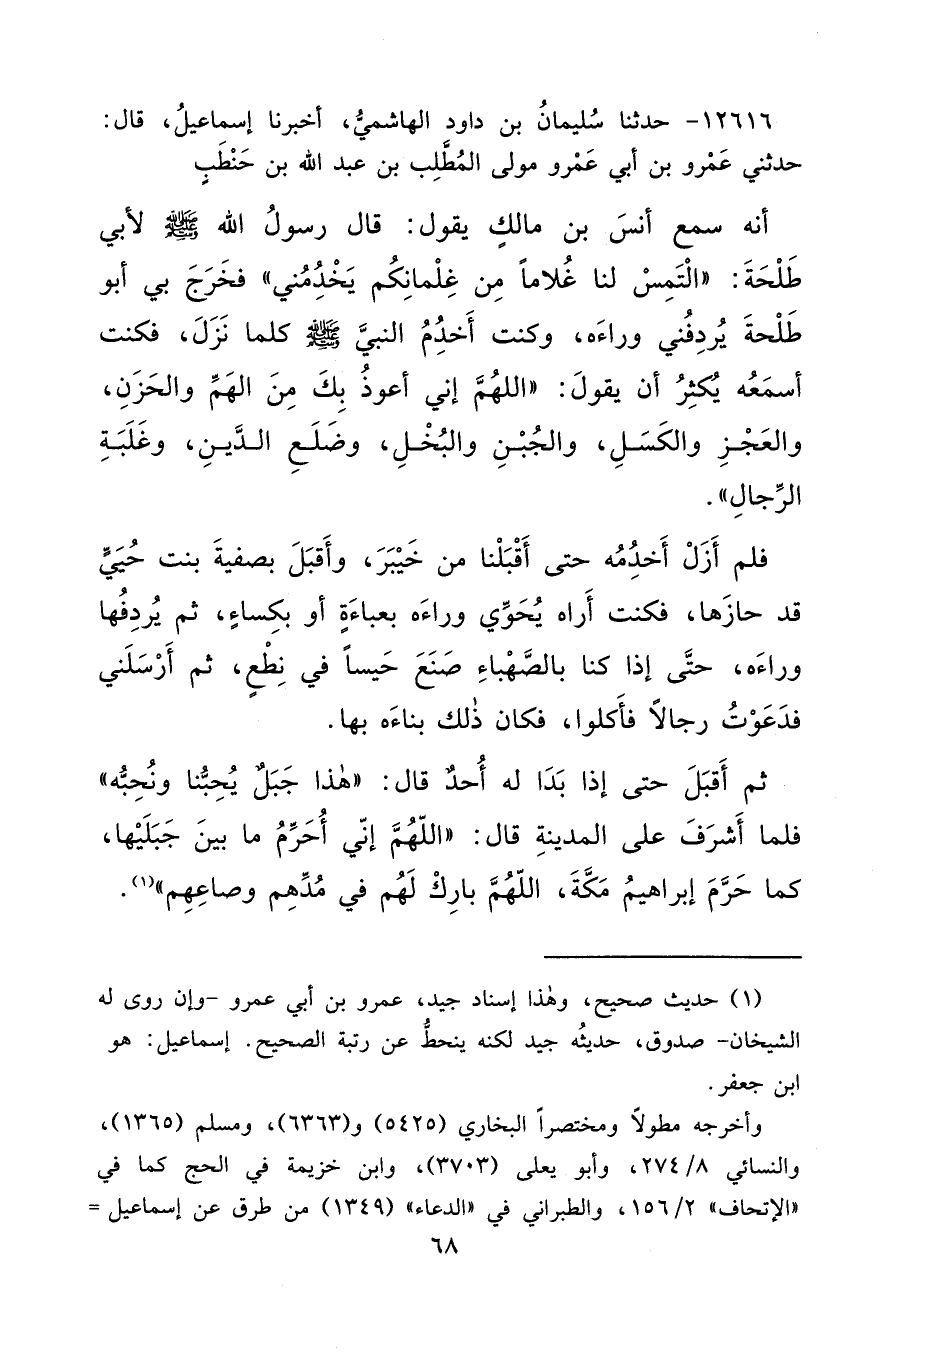 ١٢٦١٦- حدثنا سُليمانُ بن داود الهاشميُّ، أخبرنا إسماعيلُ، قال:
حدثني عَمْرو بن أبي عَمْرو مولى المُطَّلِب بن عبد الله بن حَنْطَبٍ
أنه سمع أنسَ بن مالكٍ يقول: قال رسولُ الله ﷺ لأبي
طَلْحَةَ: «الْتَمِسْ لنا غُلاماً مِن غِلْمانِكُم يَخْدُمُني» فخَرَجَ بي أبو
طَلْحةَ يُردِفُني وراءَه، وكنت أَخدِمُ النبيَّ ﷺ كلما نَزَلَ، فكنت
أسمَعُه يُكثِرُ أن يقولَ: «اللهُمَّ إني أعوذُ بِكَ مِنَ الهَمِّ والحَزَنِ،
والعَجْزِ والكَسَلِ، والجُبْنِ والبُخْلِ، وضَلَعِ الدَّينِ، وغَلَبَةِ
الرِّجالِ».
فلم أَزَلْ أَخدِمُه حتى أَقْبَلْنا من خَيْبَرَ، وأَقبَلَ بصفيةَ بنت حُيَيٍّ
قد حازَها، فكنت أَراه يُحَوِّي وراءَه بعباءَةٍ أو بكِساءٍ، ثم يُردِفُها
وراءَه، حتَّى إذا كنا بالصَّهْباءِ صَنَعَ حَيساً في نِطْعٍ، ثم أَرْسَلَني
فدَعَوْتُ رجالاً فأَكلوا، فكان ذٰلك بناءَه بها.
ثم أَقبَلَ حتى إذا بَدَا له أُحدٌ قال: «هٰذا جَبَلٌ يُحِبُّنا ونُحِبُّه»
فلما أَشرَفَ على المدينةِ قال: «اللّهُمَّ إنّي أُحَرِّمُ ما بينَ جَبَلَيْها،
كما حَرَّمَ إبراهيمُ مَكَّةَ، اللّهُمَّ بارِكْ لَهُم في مُدِّهِم وصاعِهِم»(١).
(١) حديث صحيح، وهٰذا إسناد جيد، عمرو بن أبي عمرو -وإن روى له
الشيخان- صدوق، حديثُه جيد لكنه ينحطُّ عن رتبة الصحيح. إسماعيل: هو
ابن جعفر.
وأخرجه مطولاً ومختصراً البخاري (٥٤٢٥) و(٦٣٦٣)، ومسلم (١٣٦٥)،
والنسائي ٢٧٤/٨، وأبو يعلى (٣٧٠٣)، وابن خزيمة في الحج كما في
«الإتحاف» ١٥٦/٢، والطبراني في «الدعاء» (١٣٤٩) من طرق عن إسماعيل =
٦٨